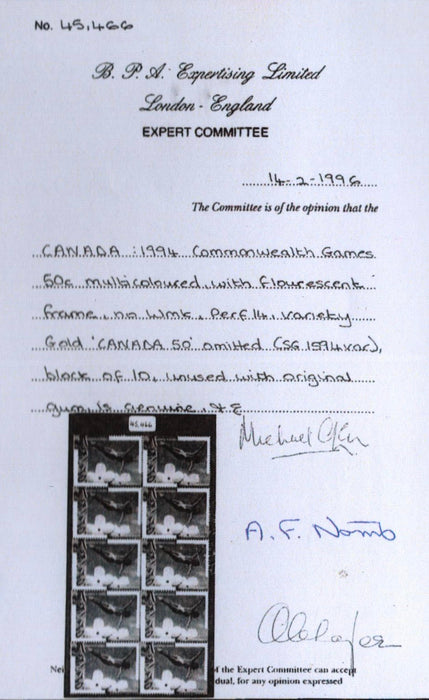 No. 45,466
B. P. A. Expertising Limited
London - England
EXPERT COMMITTEE
14-2-1996
The Committee is of the opinion that the
CANADA : 1994 Commonwealth Games
50c multicoloured, with flourescent
frame, no wmk, Perf 14, variety
Gold 'CANADA 50' omitted (SG 1594var),
block of 10, unused with original
gum, is genuine.
45,466
Michael
A. F. Nomb
of the Expert Committee can accept
dual, for any opinion expressed